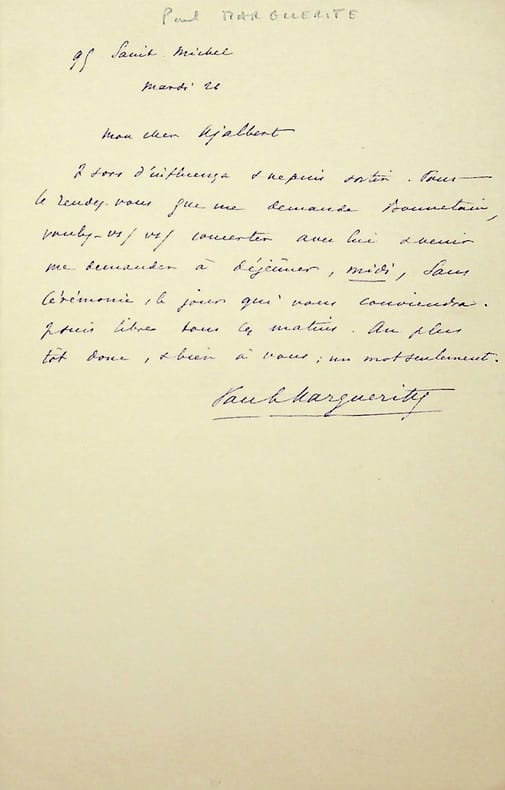 Paul MARGUERITE
95 Saint Michel
mardi 21
mon cher Ajalbert
J sors d'influenza & ne puis sortir. Pour
le rendez-vous que me demande Bonnetain,
voulez-vs vs concerter avec lui & venir
me demander à déjeûner, midi, sans
cérémonie, le jour qui vous conviendra.
J suis libre tous les matins. Au plus
tôt donc, & bien à vous ; un mot seulement.
Paul Margueritte